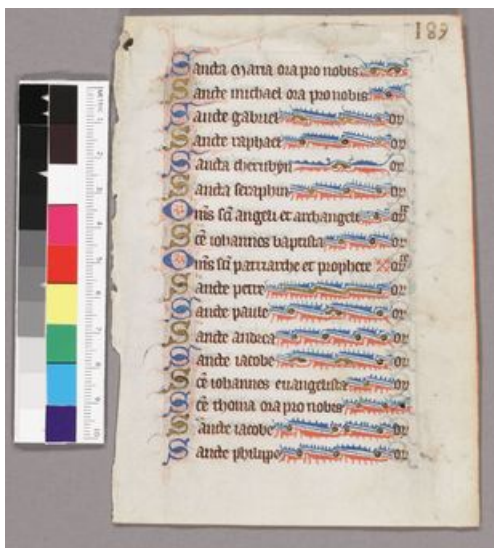 189
Sancta maria ora pro nobis
Sancte michael ora pro nobis
Sancte gabriel or
Sancte raphael or
Sancta cherubyn or
Sancta seraphin or
Omnis sci angeli et archangeli or
Sce iohannes baptista or
Omnis sci patriarche et prophete or
Sancte petre or
Sancte paule or
Sancte andrea or
Sancte iacobe or
Sce iohannes euangelista or
Sce thoma ora pro nobis
Sancte iacobe or
Sancte philippe or